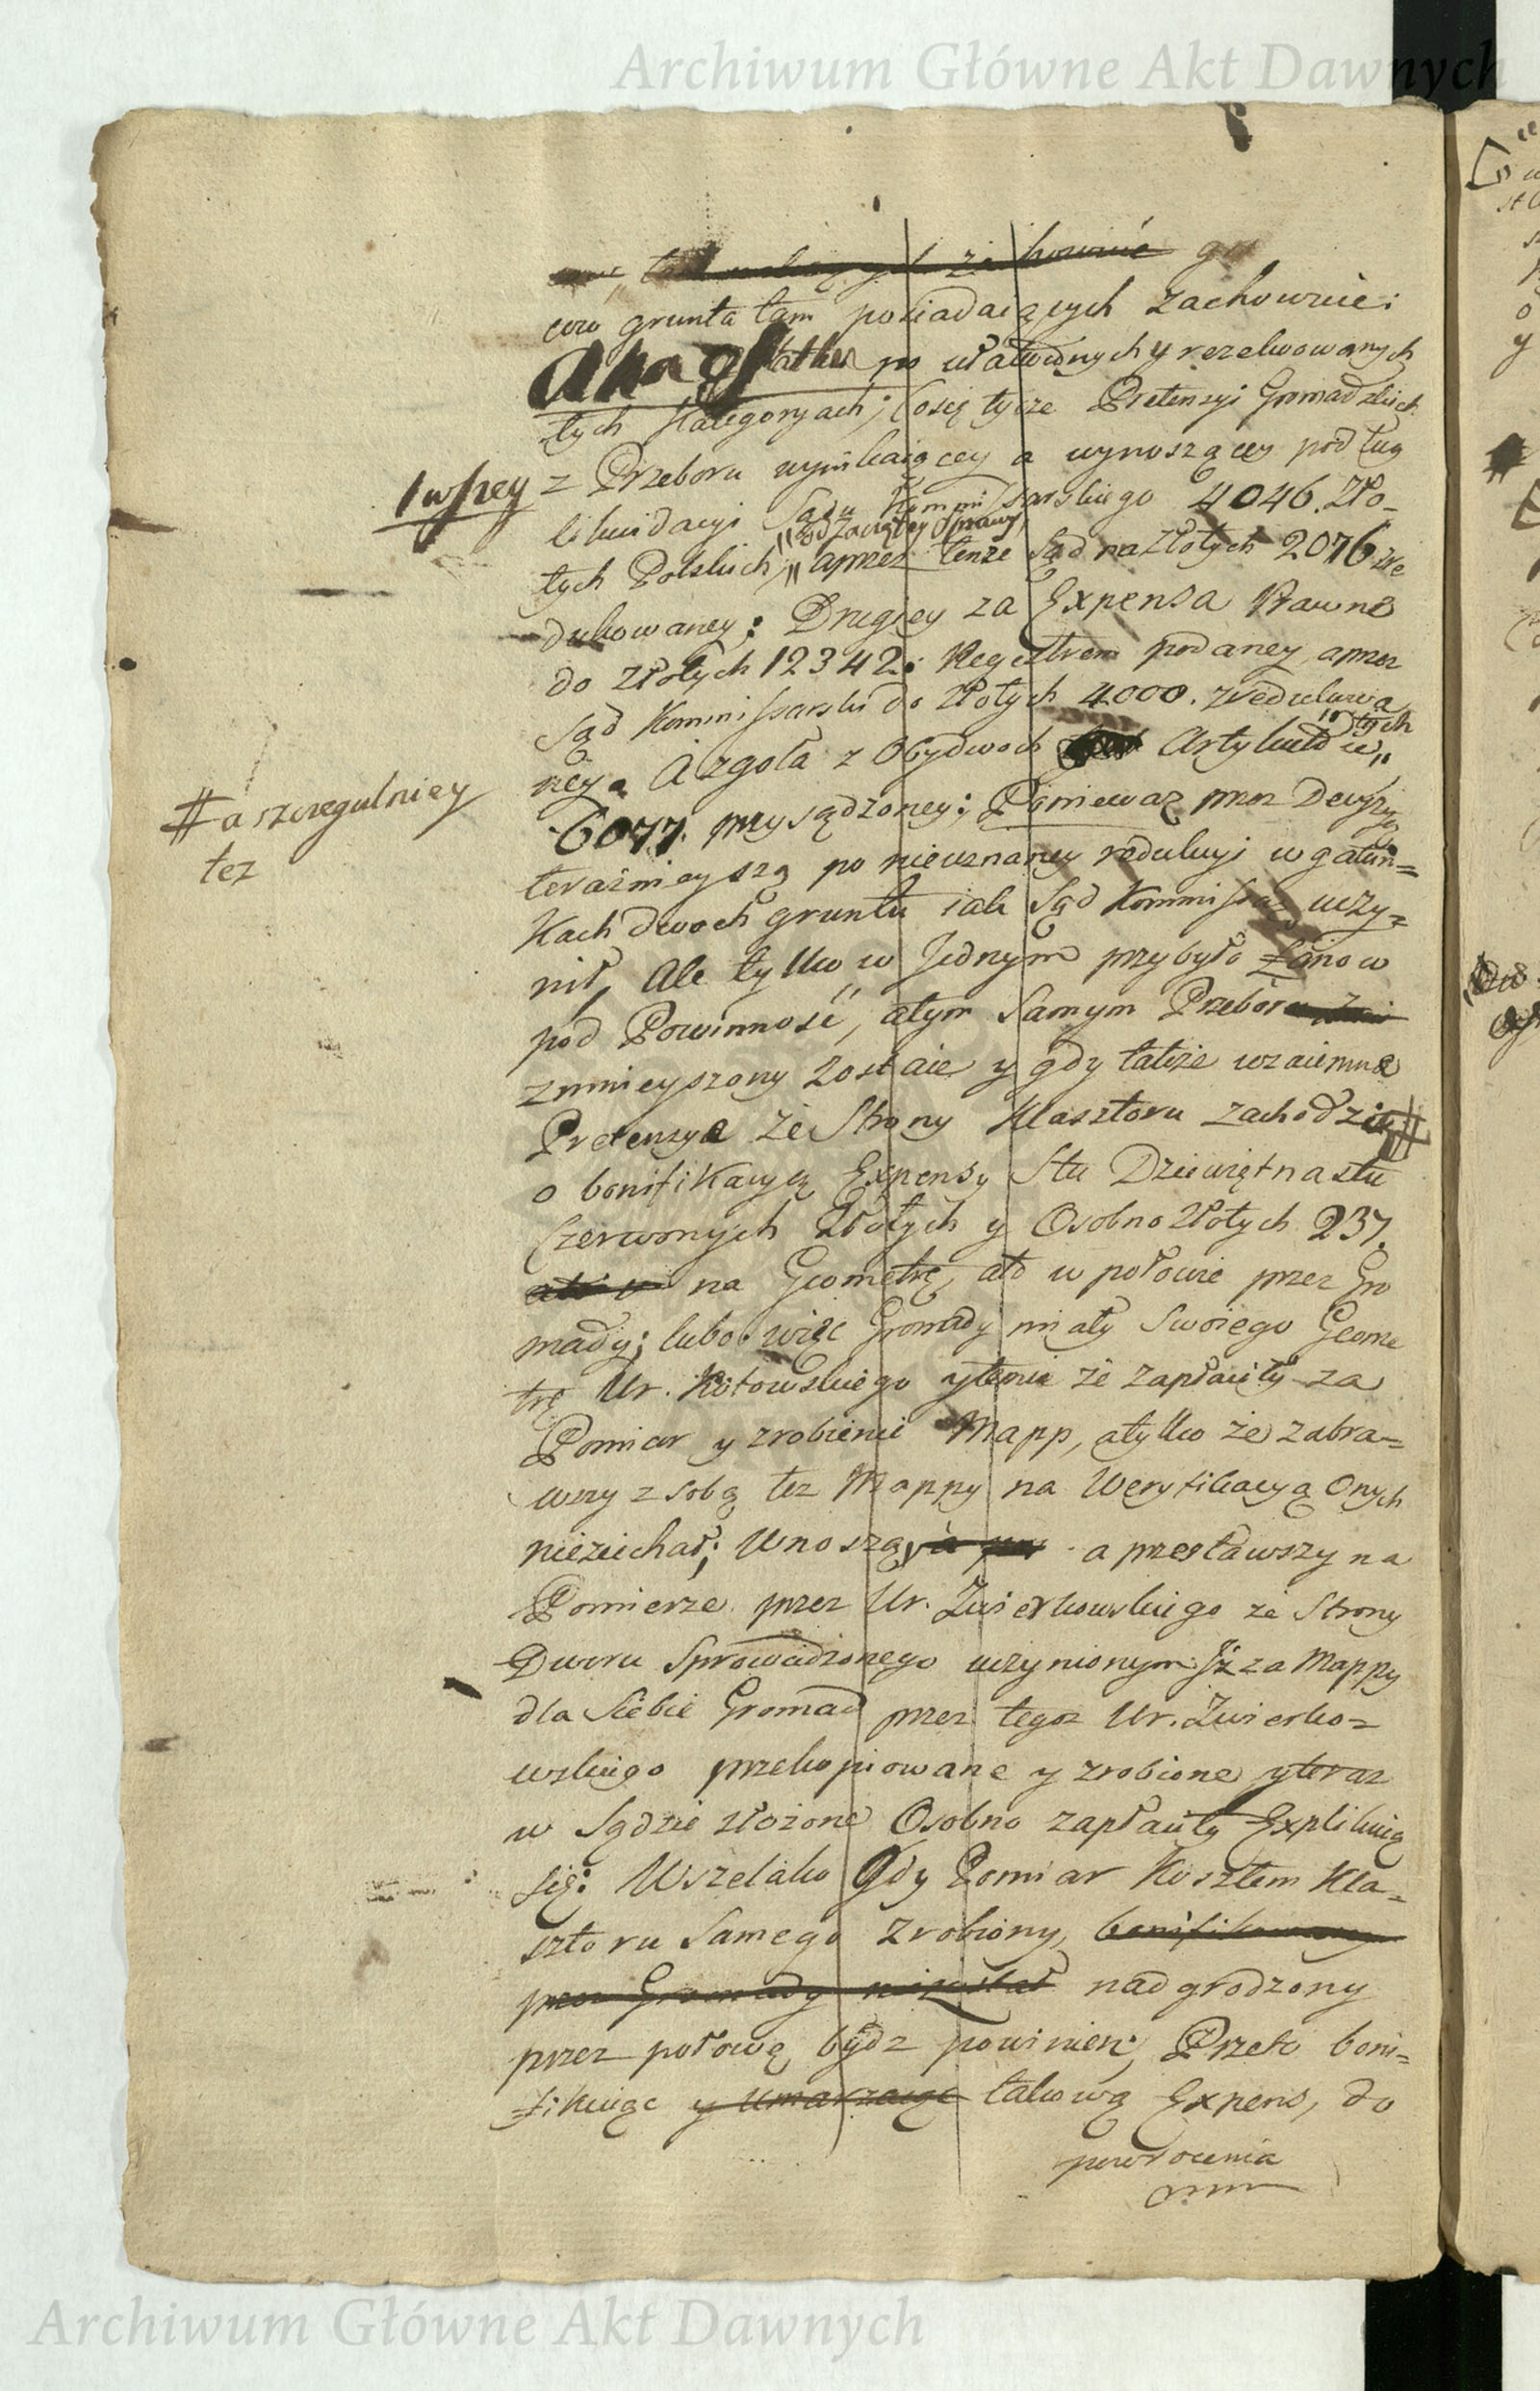 Archiwum Główne Akt Dawnych
cow grunta tam posiadaiących zachowuie;
A na ostatku po ułatwionych y rezelwowanych
tych Kategoryach; Cosię tycze Pretensyi Gromadzkich
1wszey z Przeboru wynikaiącey a wynoszącey podług
likwidacyi Sądu Kommissarskiego 4046. Zło-
"od zaczętey sprawy,
tych Polskich, "aprzez tenże Sąd na Złotych 2076 zre
dukowaney; Drugiey za Expensa Prawne
do złotych 12342. Regestrem podaney, aprzez
Sąd Kommissarski do Złotych 4000. zredukowa
ney. A zgoła z Obydwoch Artykułow "tych
# a szczegulniey
6077. przysądzoney; Ponieważ przez Dewizyą
też
teraźnieyszą po nieuznaney redukcyi w gatun=
kach dwoch gruntu iak Sąd Kommissar. uczy=
nił, Ale tylko w Jednym przybyło Łanow
pod Powinność, atym Samym Przebor
zmnieyszony Zostaie y gdy także wzaiemne
Pretensye ze Strony Klasztoru zachodzą #
o bonifikacyą Expensy Stu Dziewiętnastu
Czerwonych Złotych y Osobno Złotych 237.
na Geometrę, ato w połowie przez Gro
mady; lubo więc Gromady miały Swoiego Geome
trę Ur. Kotowskiego ytemu że zapłaciły za
Pomiar y zrobienie Mapp, atylko że zabra=
wszy z sobą też Mappy na Weryfikacyą Onych
nieziechał; Wnoszą, a przestawszy na
Pomierze przez Ur. Zwierkowskiego ze Strony
Dworu Sprowadzonego uczynionym Iż za Mappy
dla Siebie Gromad przez tegoż Ur. Zwierko=
wskiego przekopiowane y zrobione yteraz
w Sądzie złożone Osobno zapłaciły Explikuią
się: Wszelako Gdy Pomiar Kosztem Kla=
sztoru Samego zrobiony, bonifikowany
przez Gromady niezostał nadgrodzony
przez połowę bydz powinien, Przeto boni=
fikuiąc y umarzaiąc takową Expens, do
powrocenia
Archiwum Główne Akt Dawnych